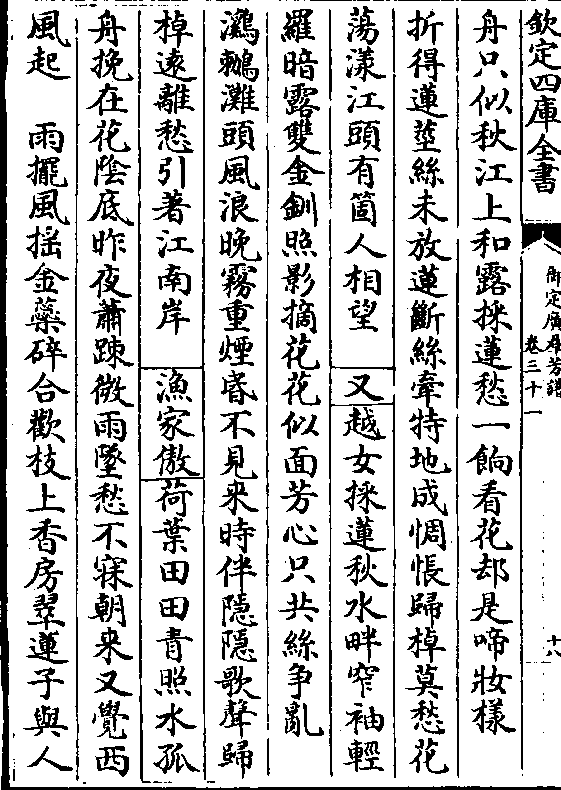 欽定四庫全書
御定廣羣芳譜
卷三十一
十八
舟只似秋江上和露採蓮愁一餉看花却是啼妝樣
折得蓮莖絲未放蓮斷絲牽特地成惆悵歸棹莫愁花
蕩漾江頭有箇人相望　又　越女採蓮秋水畔窄袖輕
羅暗露雙金釧照影摘花花似面芳心只共絲争亂
鸂鶒灘頭風浪晚霧重煙昏不見來時伴隱隱歌聲歸
棹遠離愁引著江南岸　漁家傲　荷葉田田青照水孤
舟挽在花陰底昨夜蕭踈微雨墜愁不寐朝来又覺西
風起　雨擺風揺金蘂碎合歡枝上香房翠蓮子與人